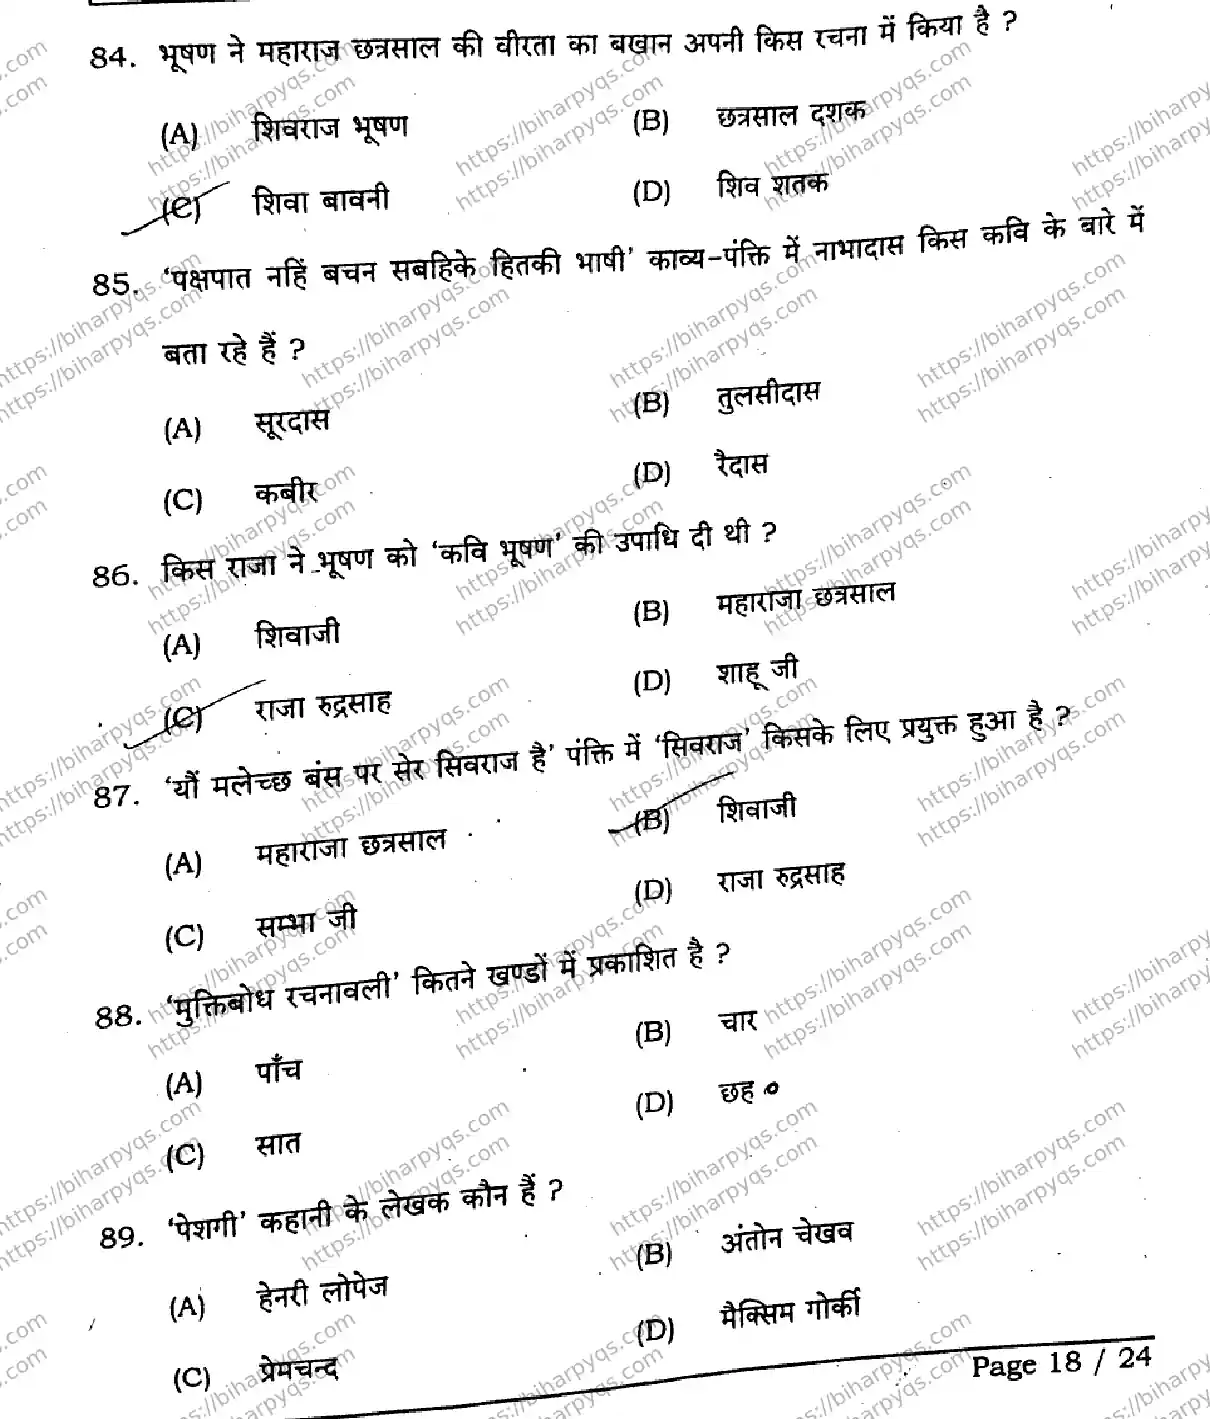 84. भूषण ने महाराज छत्रसाल की वीरता का बखान अपनी किस रचना में किया है ?
(A) शिवराज भूषण (B) छत्रसाल दशक
(C) शिवा बावनी (D) शिव शतक
85. ‘पक्षपात नहिं बचन सबहिके हितकी भाषी’ काव्य-पंक्ति में नाभादास किस कवि के बारे में
बता रहे हैं ?
(A) सूरदास (B) तुलसीदास
(C) कबीर (D) रैदास
86. किस राजा ने भूषण को ‘कवि भूषण’ की उपाधि दी थी ?
(A) शिवाजी (B) महाराजा छत्रसाल
(C) राजा रुद्रसाह (D) शाहू जी
87. ‘यौं मलेच्छ बंस पर सेर सिवराज है’ पंक्ति में ‘सिवराज’ किसके लिए प्रयुक्त हुआ है ?
(A) महाराजा छत्रसाल (B) शिवाजी
(C) सम्भा जी (D) राजा रुद्रसाह
88. ‘मुक्तिबोध रचनावली’ कितने खण्डों में प्रकाशित है ?
(A) पाँच (B) चार
(C) सात (D) छह
89. ‘पेशगी’ कहानी के लेखक कौन हैं ?
(A) हेनरी लोपेज (B) अंतोन चेखव
(C) प्रेमचन्द (D) मैक्सिम गोर्की
Page 18 / 24
https://biharpyqs.com